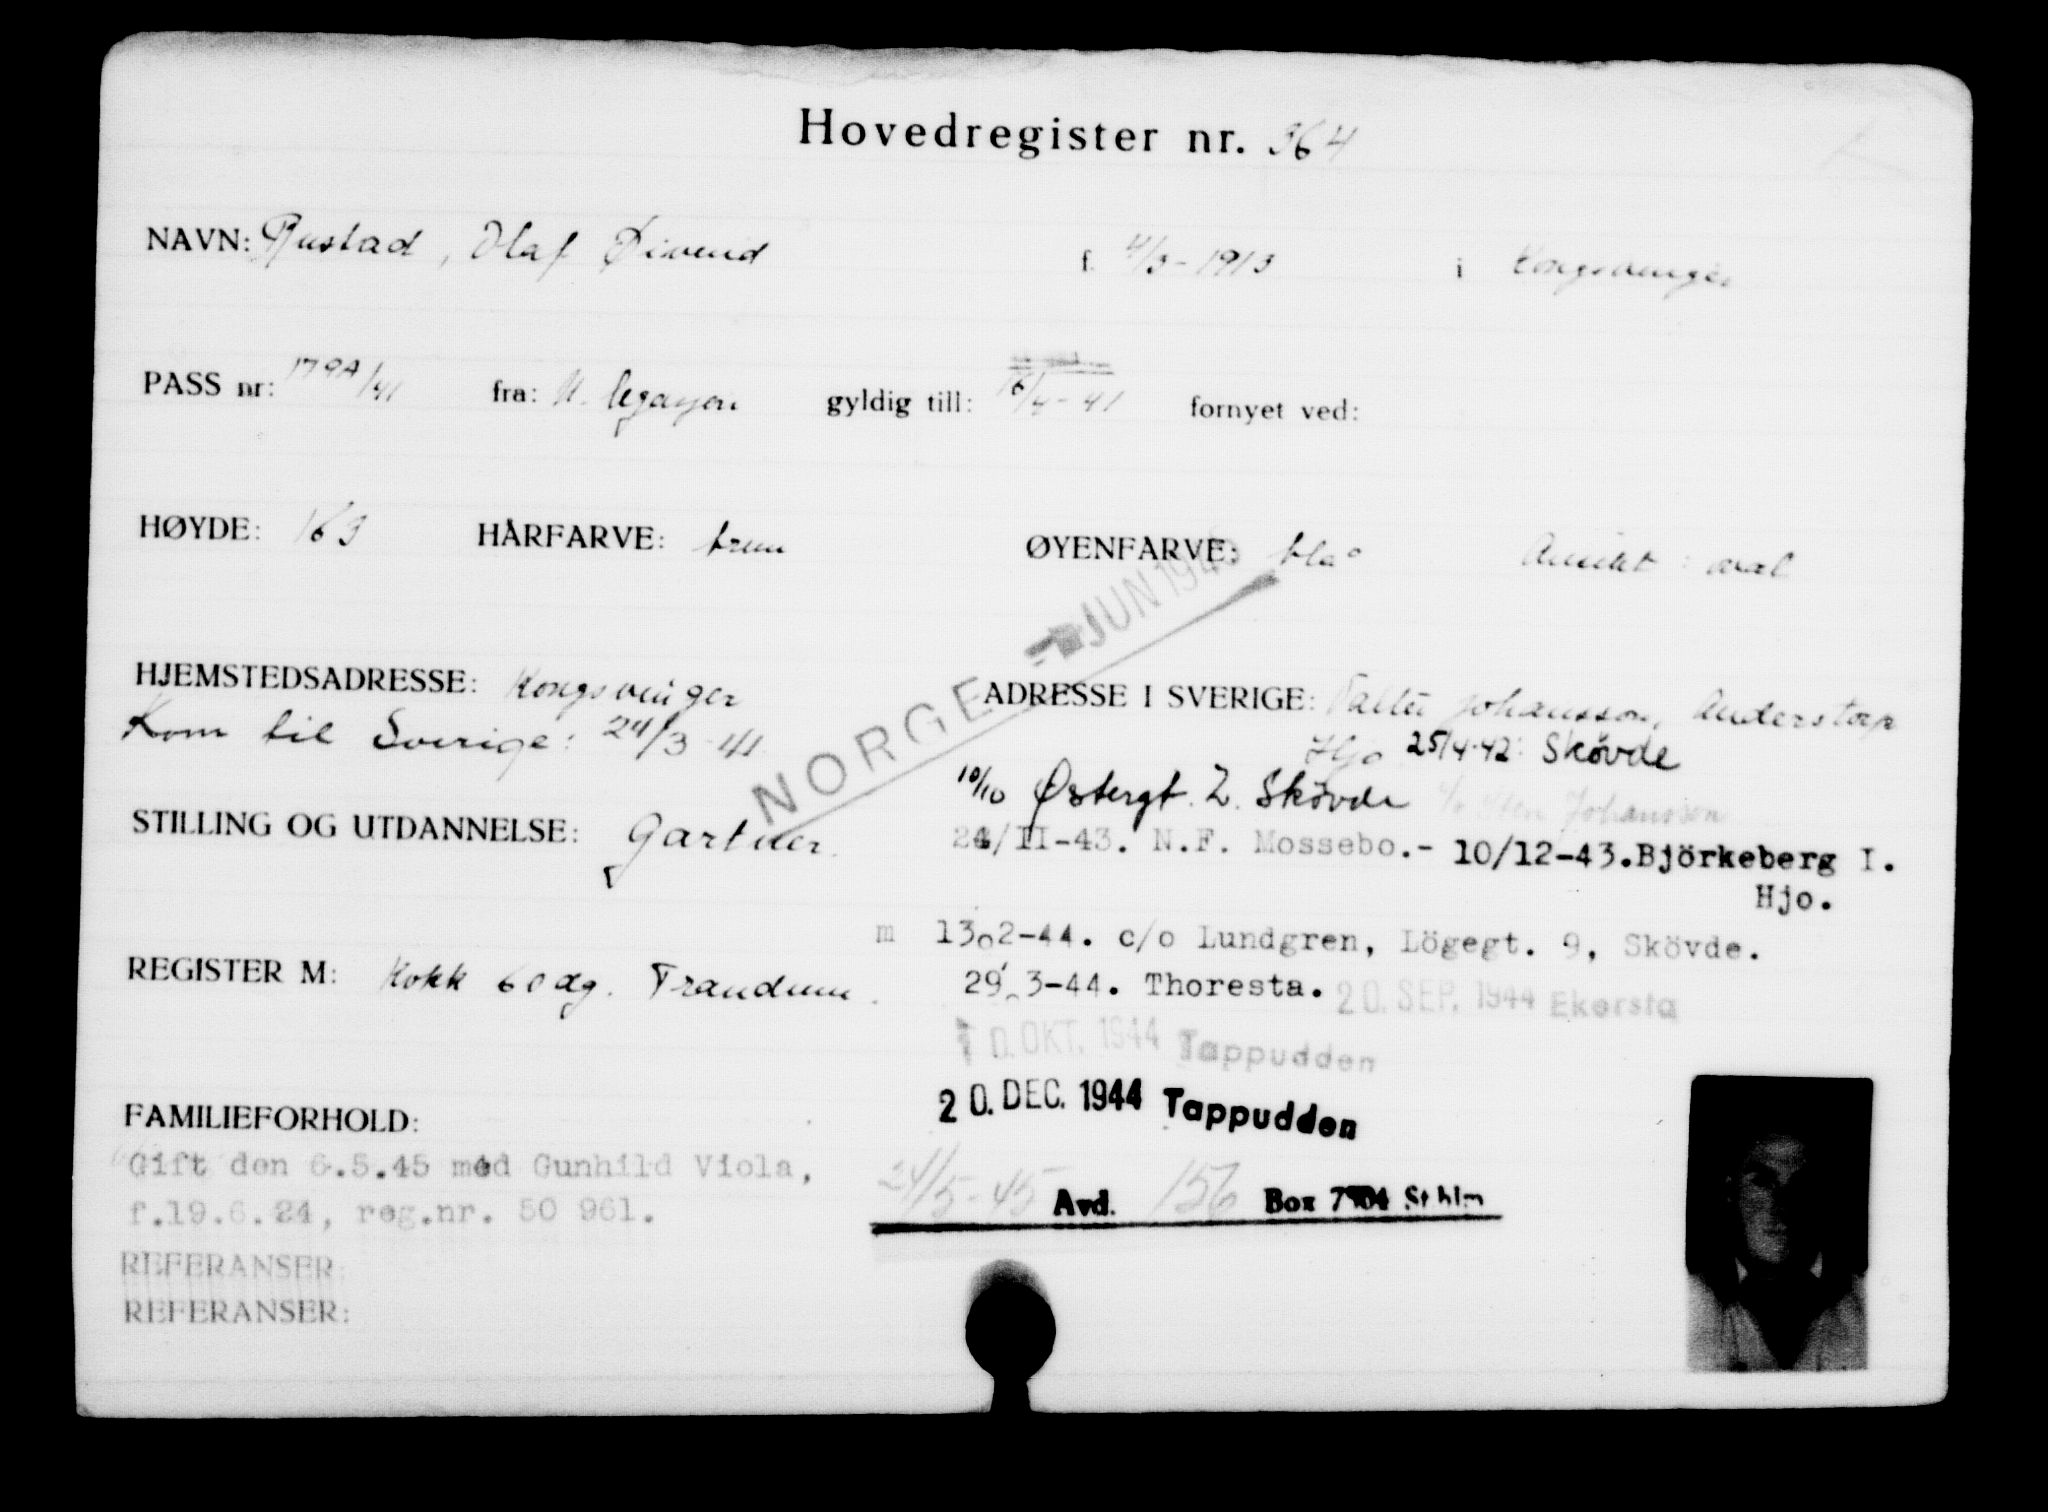 Hovedregister nr. 364
NAVN: Rustad, Olaf Øivend f. 4/3-1913 i Kongsvinger
PASS nr: 179A/41 fra: N. legasjon gyldig till: 16/4-41 fornyet ved:
HØYDE: 169 HÅRFARVE: brun ØYENFARVE: blå Ansikt: oval
JUN 194
NORGE
HJEMSTEDSADRESSE: Kongsvinger
Kom til Sverige: 24/3-41
ADRESSE I SVERIGE: Johansson, Anderstorp
Hjo 25/4-42: Skövde
10/10 Østergt. 2. Skövde c/o Sten Johansson
STILLING OG UTDANNELSE: Gartner.
24/11-43. N.F. Mossebo.- 10/12-43.Björkeberg I.
Hjo.
m 13.2-44. c/o Lundgren, Lögegt. 9, Skövde.
REGISTER M: Kokk 60 dg. Trandum.
29.3-44. Thoresta. 20. SEP. 1944 Ekersta
10. OKT. 1944 Tappudden
20. DEC. 1944 Tappudden
FAMILIEFORHOLD:
Gift den 6.5.45 med Gunhild Viola,
f.19.6.24, reg.nr. 50 961.
24/5-45 Avd. 156 Box 7904 Sthlm
REFERANSER:
REFERANSER: